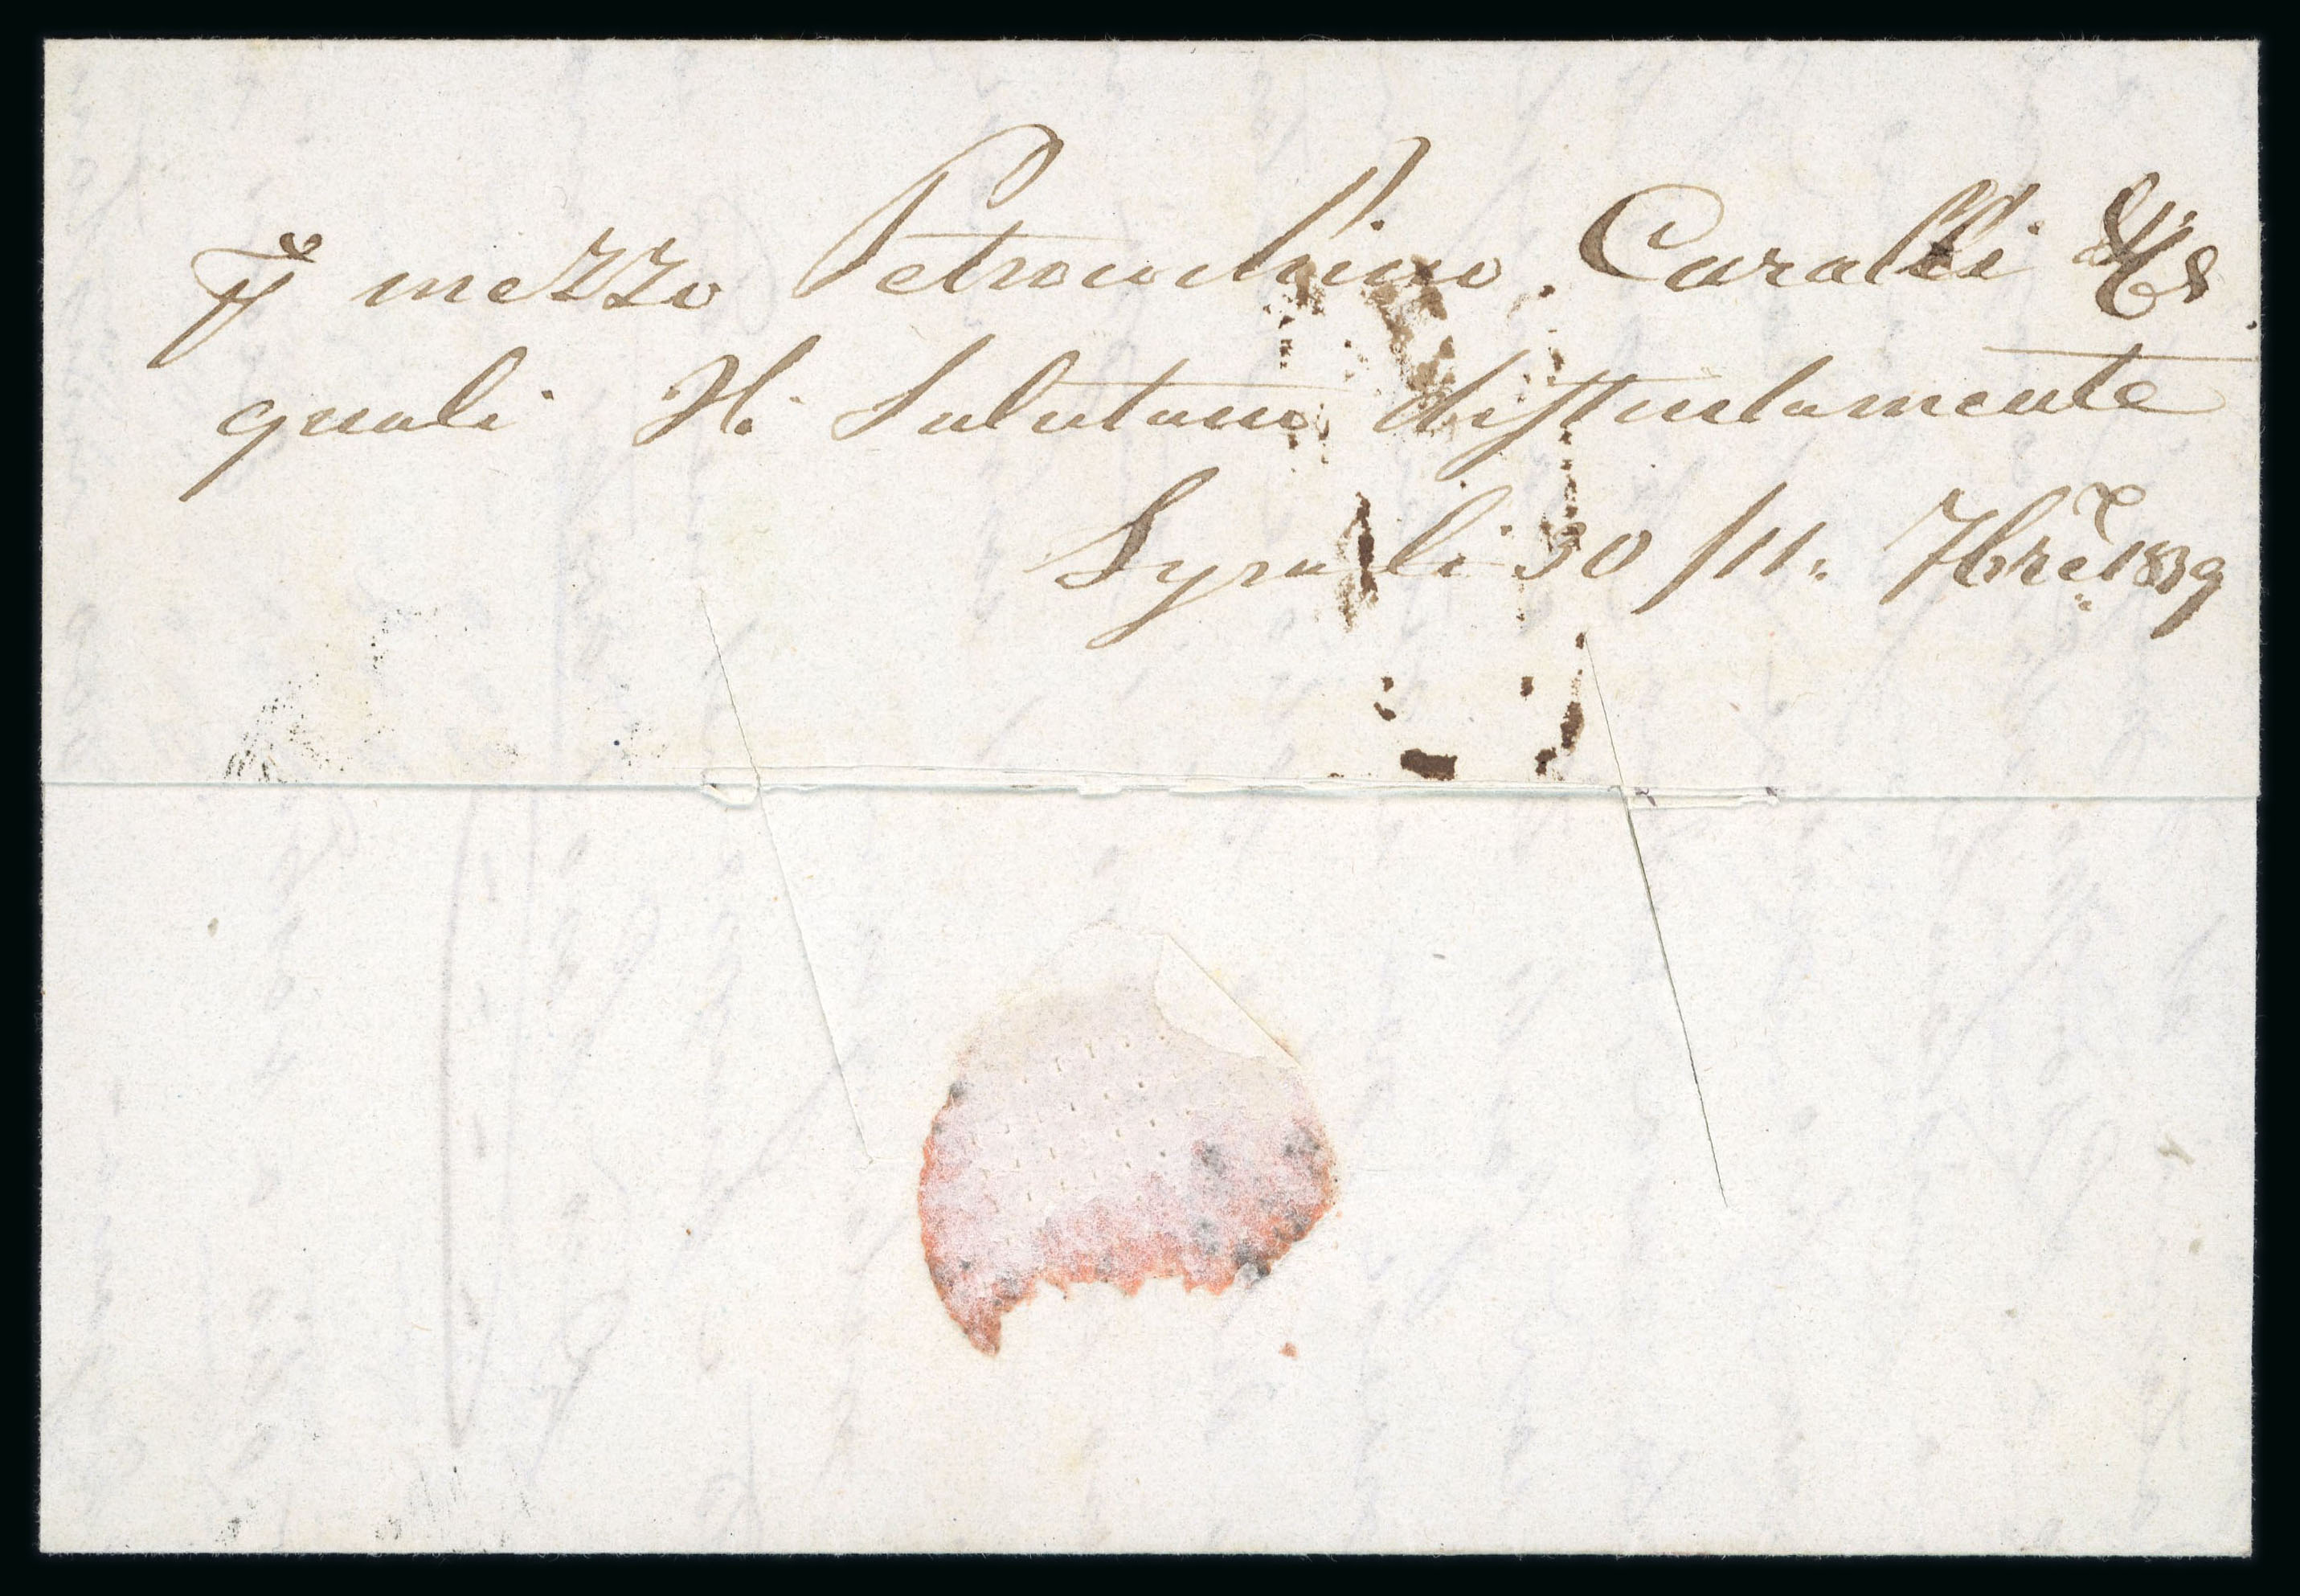 Pr mezzo Petrocochino. Caralli & Cs.
quali Vi. Salutano distintamente
Syra li 30/11. 7bre 1839